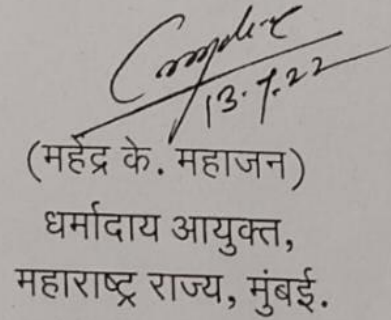 13.7.22
(महेंद्र के. महाजन)
धर्मादाय आयुक्त,
महाराष्ट्र राज्य, मुंबई.